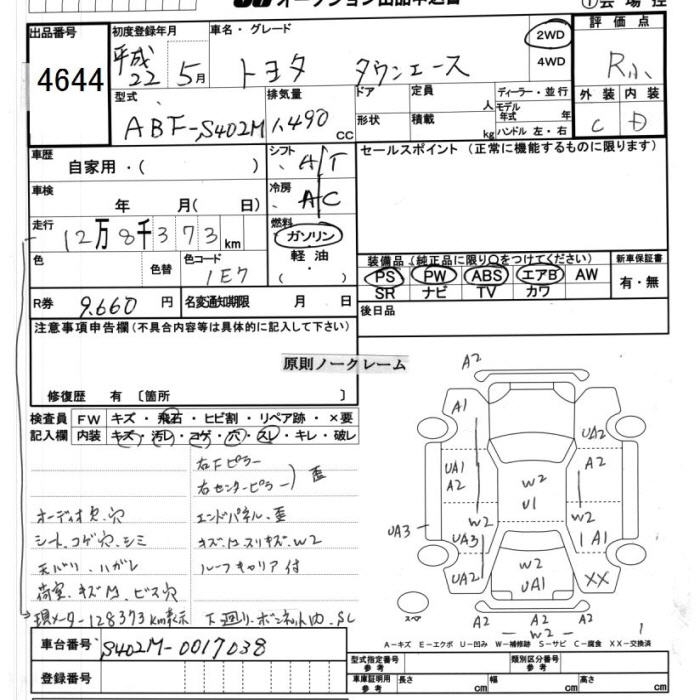 オークション出品申込書
①会場控
出品番号 初度登録年月 車名・グレード 評価点
4644 平成22年5月 トヨタ タウンエース 2WD 4WD R小
型式 排気量 ドア 定員 人 ディーラー・並行 外装 内装
ABF-S402M 1,490 cc 形状 積載 kg モデル年式 年 ハンドル 左・右 C D
車歴 シフト セールスポイント(正常に機能するものに限ります)
自家用・( ) A/T
車検 冷房
年 月( 日) A/C
走行 燃料
12万8千373km ガソリン
色 色替 色コード 軽油 装備品(純正品に限り○をつけてください) 新車保証書
1E7 ・( ) PS PW ABS エアB AW 有・無
SR ナビ TV カワ
R券 9.660円 名変通知期限 月 日 後日品
注意事項申告欄(不具合内容等は具体的に記入して下さい)
原則ノークレーム
修復歴 有〔箇所 〕
検査員 FW キズ・飛石・ヒビ割・リペア跡・×要
記入欄 内装 キズ・汚レ・コゲ・穴・スレ・キレ・破レ
右Fピラー
右センターピラー ) 歪
オーディオ欠.穴 エンドパネル.歪
シート.コゲ穴.シミ キズ.M.スリキズ.W2
天バリ.ハガレ ルーフキャリア付
荷室.キズM.ビス穴
現メーター128373km表示 下廻り.ボンネット内.SC
車台番号 S402M-0017038
登録番号
A2
A1 UA2
A2
UA1
A2 W2
U1
W2 W2
UA3 UA3 A1
UA2 W2
UA1 XX
スペア A2 A2 A2
W2
1
A-キズ E-エクボ U-凹み W-補修跡 S-サビ C-腐食 XX-交換済
型式指定番号 参考 類別区分番号 参考
車庫証明用 参考 長さ cm 幅 cm 高さ cm